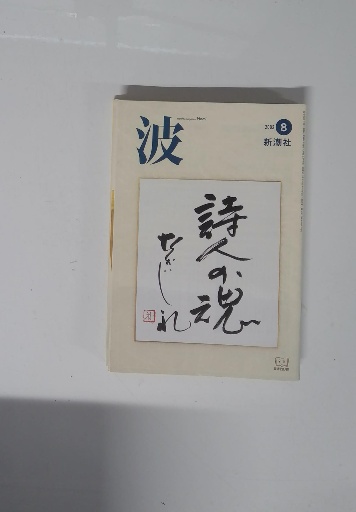 波
2003 8
新潮社
詩人の魂
なかにし礼